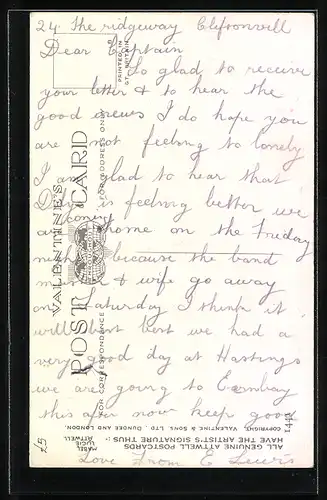 24 The ridgeway Cliftonvill
Dear Captain
So glad to receive
your letter & to hear the
good news I do hope you
are not feeling to lonely
I am glad to hear that
is feeling better we
are coming home on the Friday
night because the band
& wife go away
on Saturday I think it
will best we had a
very good day at Hastings
we are going to
this after now keep good
Love From E Lewis
£5
VALENTINE'S
POST CARD
FOR CORRESPONDENCE
FOR ADDRESS ONLY
PRINTED IN
GT. BRITAIN
ALL GENUINE ATTWELL POSTCARDS
HAVE THE ARTIST'S SIGNATURE THUS :-
MABEL
LUCIE
ATTWELL
COPYRIGHT. VALENTINE & SONS, LTD. DUNDEE AND LONDON.